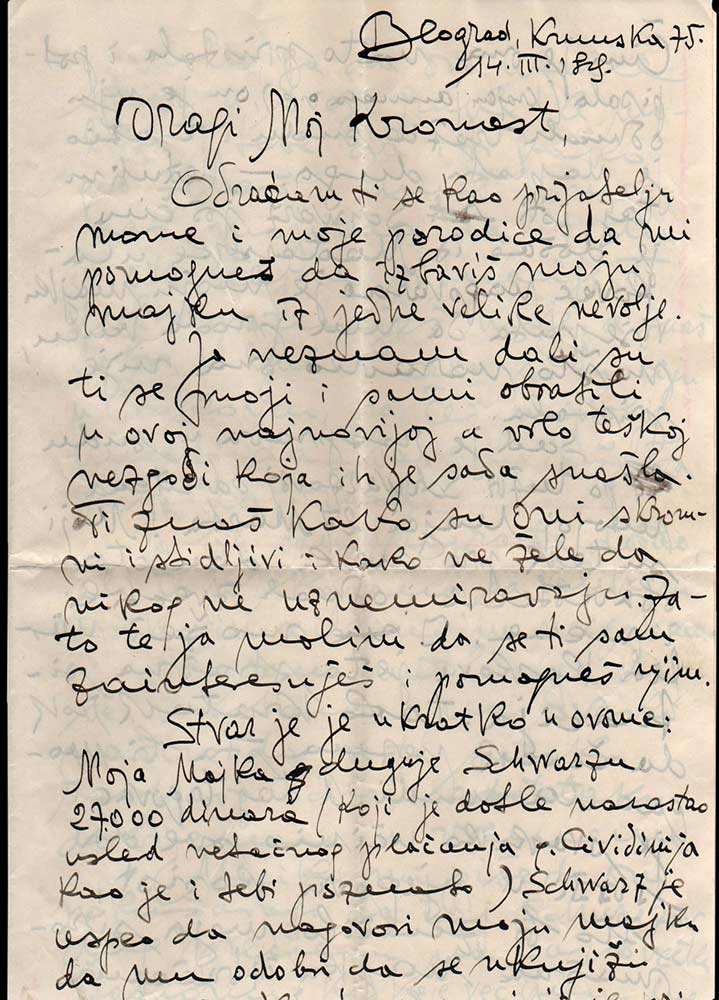 Beograd, Krunska 75.
14. III. 19
Dragi Moj
Obraćam ti se kao prijatelju
mome i moje porodice da mi
pomogneš da izbaviš moju
majku iz jedne velike nevolje.
Ja neznam dali su
ti se moji i sami obratili
u ovoj najnovijoj a vrlo teškoj
nezgodi koja ih je sada snašla.
Ti znaš kako su oni skrom-
ni i stidljivi i kako ne žele da
nikog ne uznemiravaju. Za-
to te ja molim da se ti sam
zainteresuješ i pomogneš njim.
Stvar je je ukratko u ovome:
Moja Majka duguje Schwarzu
27.000 dinara (koji je dotle narastao
usled netačnog plaćanja g. Cividinija
kao je i tebi poznato) Schwarz je
uspeo da nagovori moju majku
da mu odobri da se uknjiži